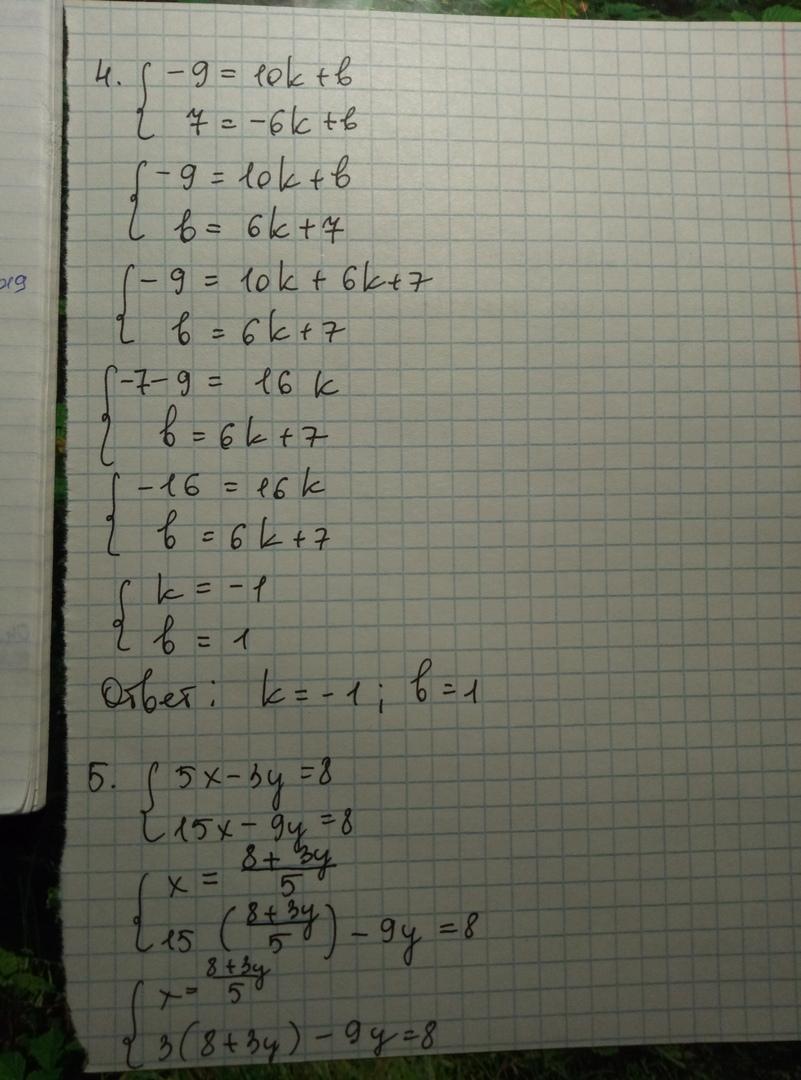 4. { -9 = 10k + b
7 = -6k + b
{ -9 = 10k + b
b = 6k + 7
{ -9 = 10k + 6k + 7
b = 6k + 7
{ -7 - 9 = 16k
b = 6k + 7
{ -16 = 16k
b = 6k + 7
{ k = -1
b = 1
Ответ: k = -1; b = 1
5. { 5x - 3y = 8
15x - 9y = 8
{ x = (8 + 3y)/5
15 ((8 + 3y)/5) - 9y = 8
{ x = (8 + 3y)/5
3(8 + 3y) - 9y = 8